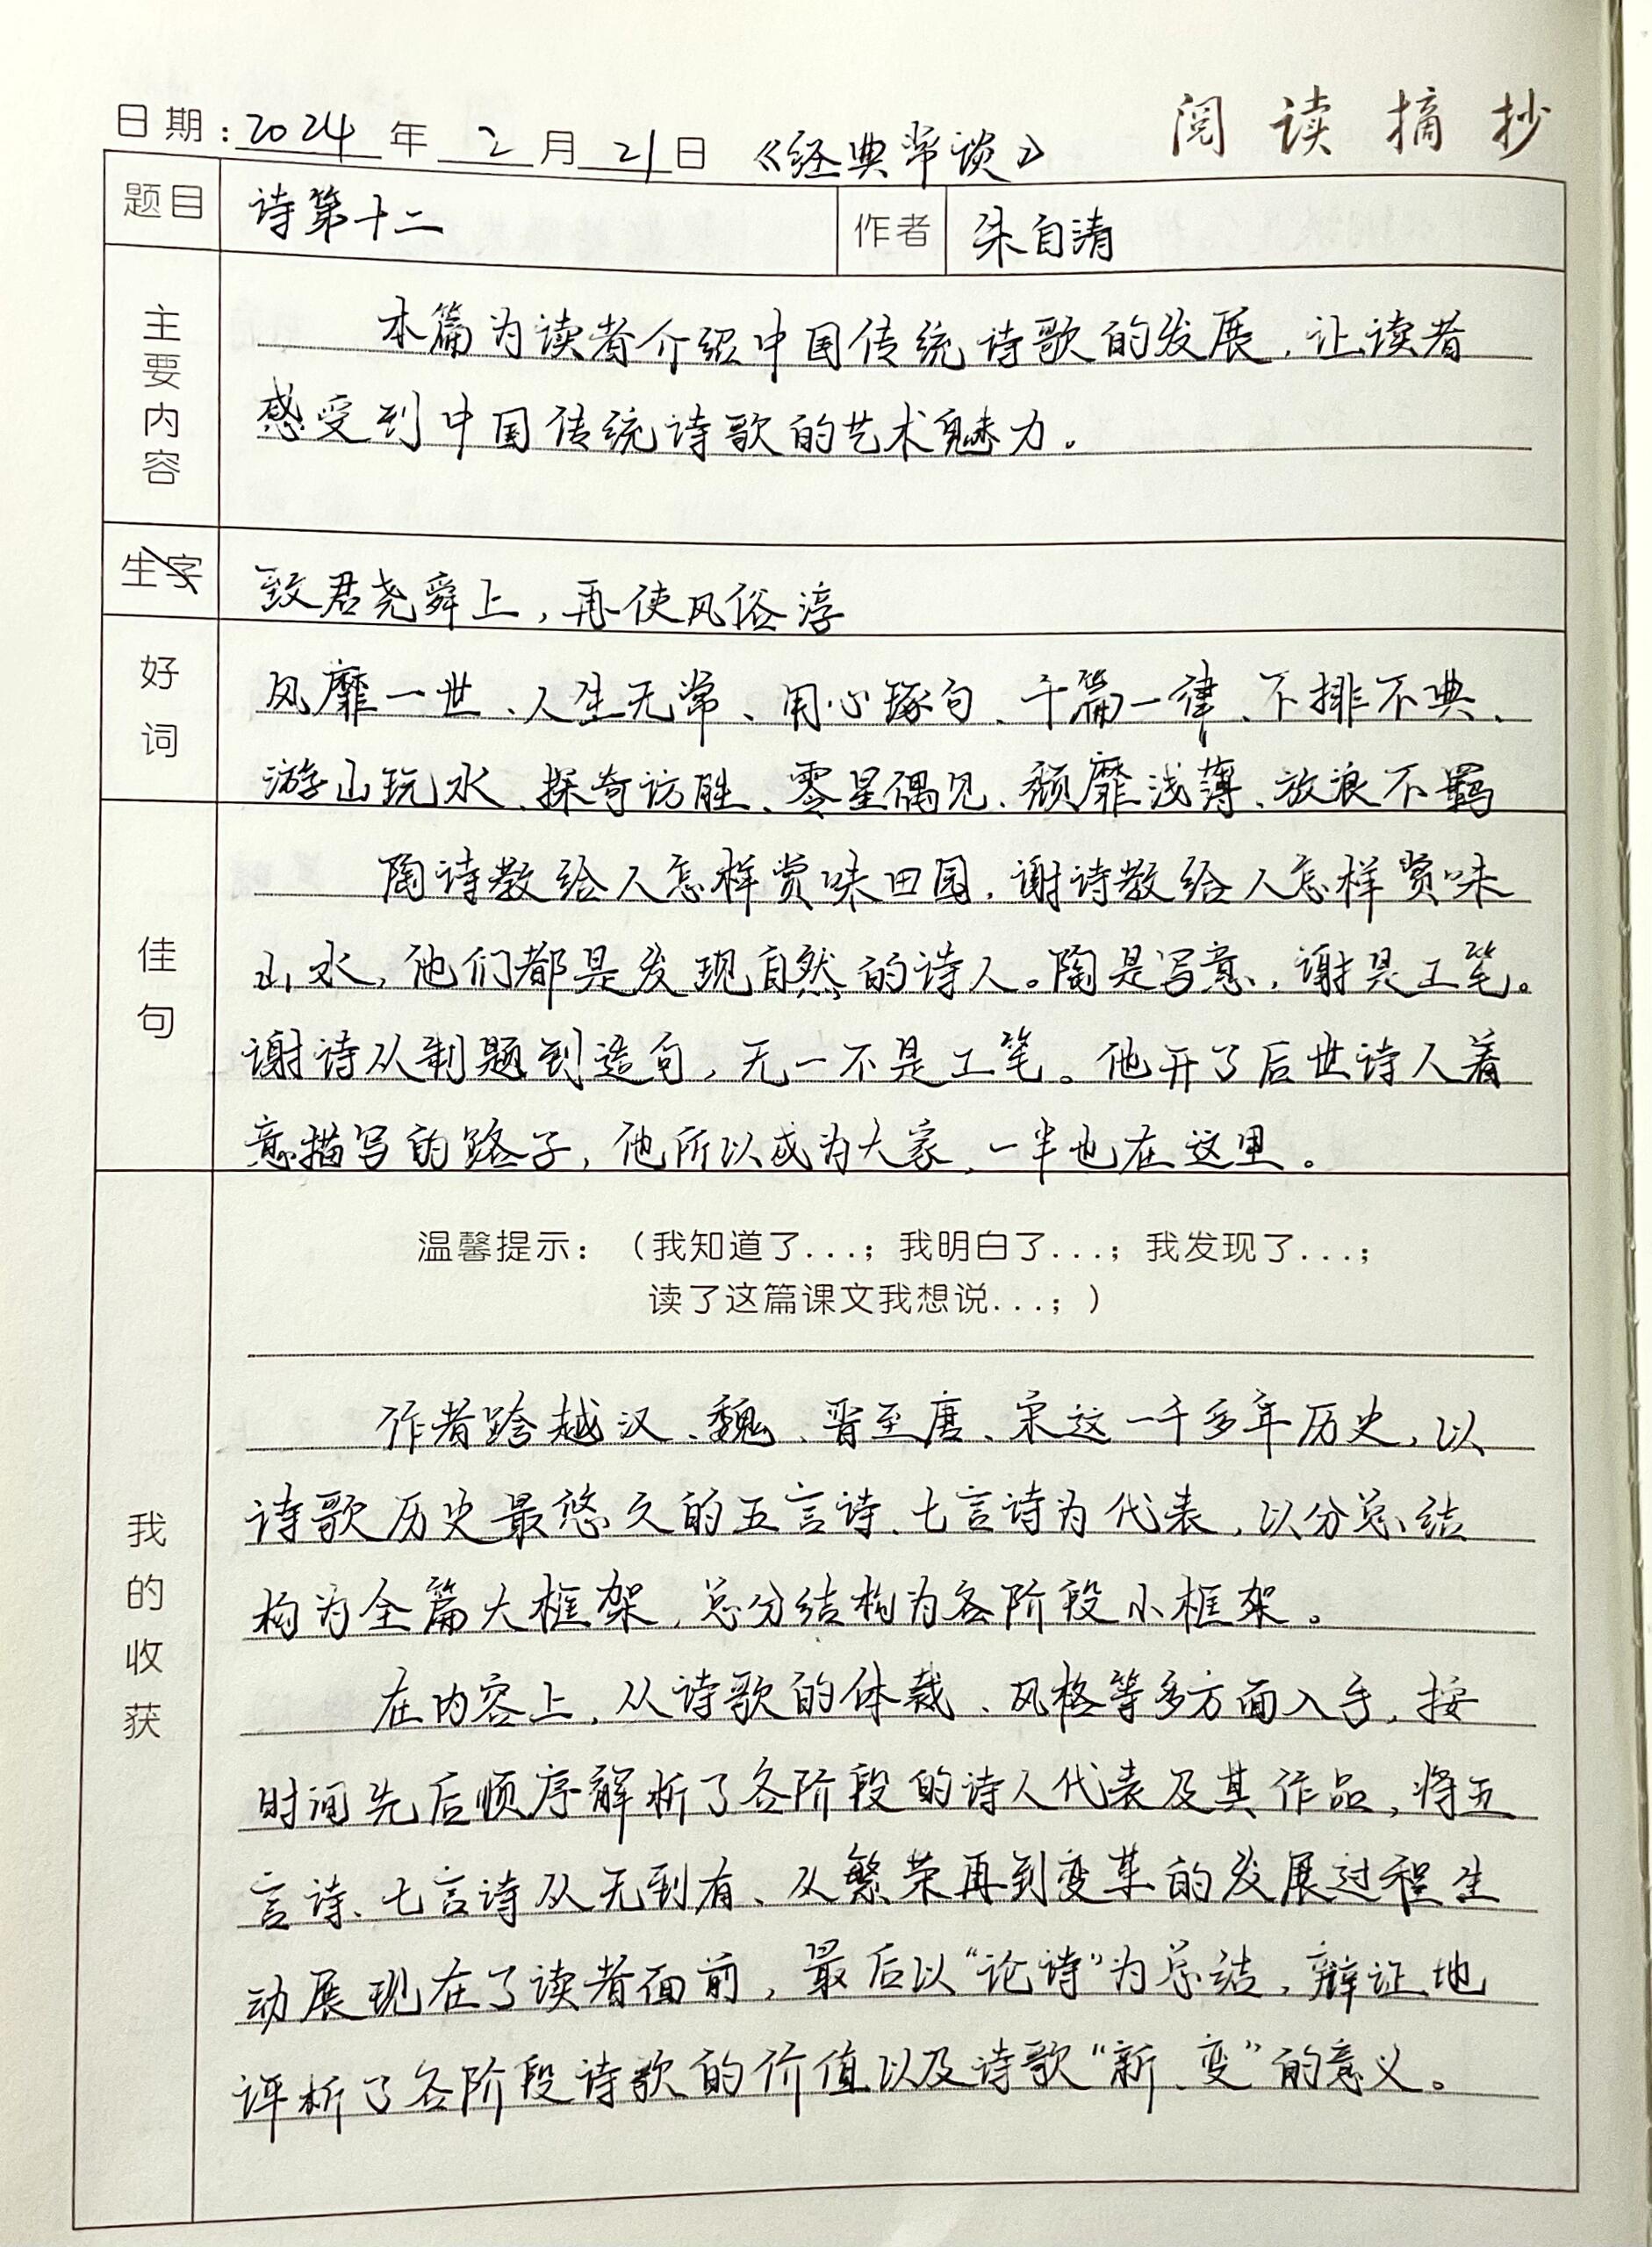 阅读摘抄
日期：2024年2月21日《经典常谈》
题目 诗第十二 作者 朱自清
主要内容
本篇为读者介绍中国传统诗歌的发展，让读者
感受到中国传统诗歌的艺术魅力。
生字 致君尧舜上，再使风俗淳
好词
风靡一世、人生无常、用心琢句、千篇一律、不排不典、
游山玩水、探奇访胜、零星偶见、颓靡浅薄、放浪不羁
佳句
陶诗教给人怎样赏味田园，谢诗教给人怎样赏味
山水，他们都是发现自然的诗人。陶是写意，谢是工笔。
谢诗从制题到造句，无一不是工笔。他开了后世诗人着
意描写的路子，他所以成为大家，一半也在这里。
我的收获
温馨提示：（我知道了...；我明白了...；我发现了...；
读了这篇课文我想说...；）
作者跨越汉、魏、晋至唐、宋这一千多年历史，以
诗歌历史最悠久的五言诗、七言诗为代表，以分总结
构为全篇大框架，总分结构为各阶段小框架。
在内容上，从诗歌的体裁、风格等多方面入手，按
时间先后顺序解析了各阶段的诗人代表及其作品，将五
言诗、七言诗从无到有、从繁荣再到变革的发展过程生
动展现在了读者面前，最后以“论诗”为总结，辩证地
评析了各阶段诗歌的价值以及诗歌“新、变”的意义。